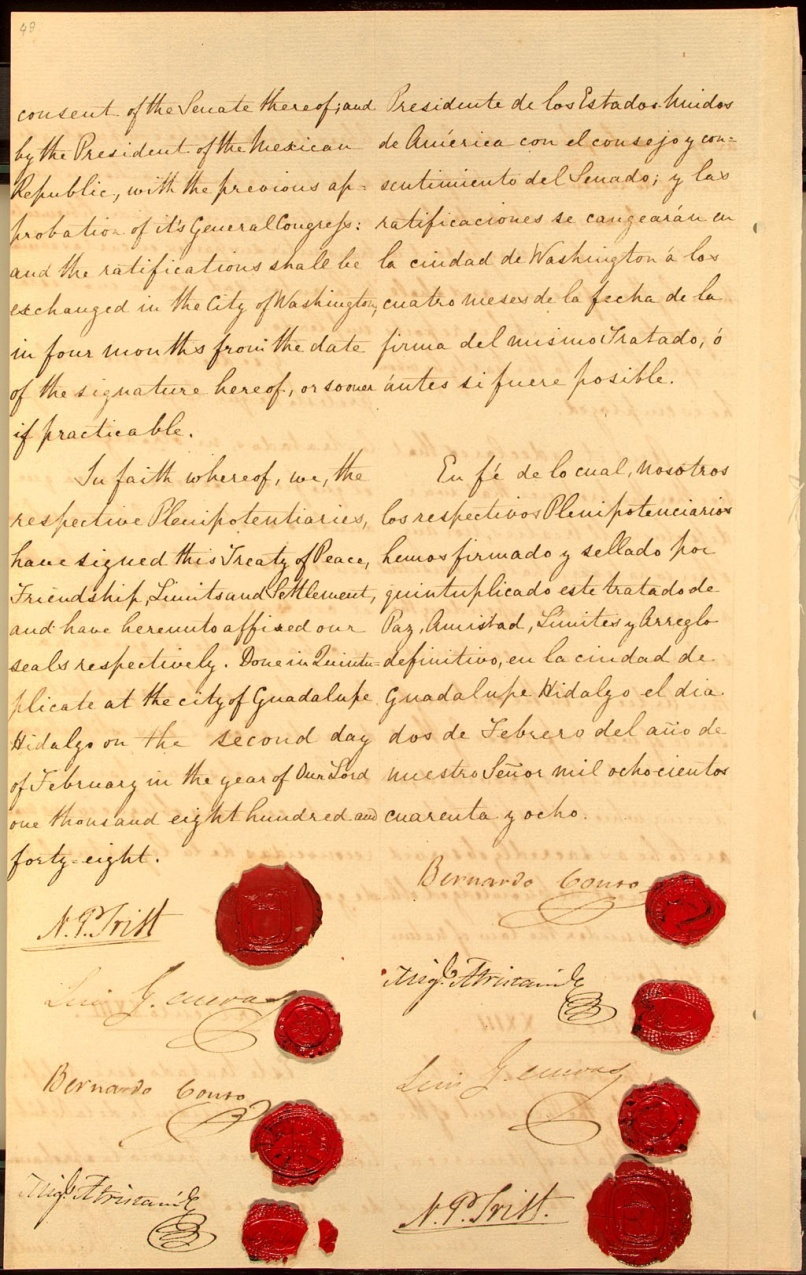 49
consent of the Senate thereof; and
by the President of the Mexican
Republic, with the previous ap-
probation of it's General Congress:
and the ratifications shall be
exchanged in the City of Washington,
in four months from the date
of the signature hereof, or sooner
if practicable.
In faith whereof, we, the
respective Plenipotentiaries,
have signed this Treaty of Peace,
Friendship, Limits and Settlement,
and have hereunto affixed our
seals respectively. Done in Quintu-
plicate at the city of Guadalupe
Hidalgo on the second day
of February in the year of Our Lord
one thousand eight hundred and
forty-eight.
N. P. Trist
Luis G. Cuevas
Bernardo Couto
Migl. Atristain
Presidente de los Estados Unidos
de América con el consejo y con-
sentimiento del Senado; y las
ratificaciones se cangearán en
la ciudad de Washington á los
cuatro meses de la fecha de la
firma del mismo Tratado, ó
ántes si fuere posible.
En fé de lo cual, nosotros
los respectivos Plenipotenciarios
hemos firmado y sellado por
quintuplicado este tratado de
Paz, Amistad, Límites y Arreglo
definitivo, en la ciudad de
Guadalupe Hidalgo el dia
dos de Febrero del año de
nuestro Señor mil ochocientos
cuarenta y ocho.
Bernardo Couto
Migl. Atristain
Luis G. Cuevas
N. P. Trist.